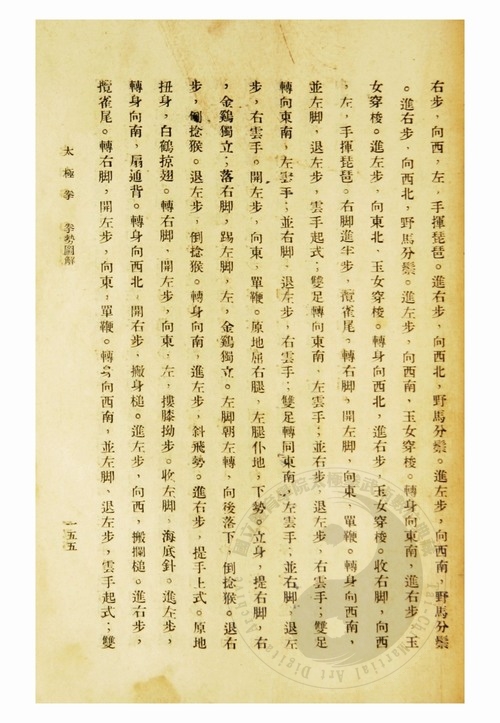 右步，向西，左，手揮琵琶。進右步，向西北，野馬分鬃。進左步，向西南，野馬分鬃
。進右步，向西北，野馬分鬃。進左步，向西南，玉女穿梭。轉身向東南，進右步，玉
女穿梭。進左步，向東北，玉女穿梭。轉身向西北，進右步，玉女穿梭。收右脚，向西
，左，手揮琵琶。右脚進半步，攬雀尾。轉右脚，開左步，向東，單鞭。轉身向西南，
並左脚，退左步，雲手起式；雙足轉向東南，左雲手；並右步，退左步，右雲手；雙足
轉向東南，左雲手；並右脚，退左步，右雲手；雙足轉向東南，左雲手；並右脚，退左
步，右雲手。開左步，向東，單鞭。原地屈右腿，左腿仆地，下勢。立身，提右脚，右
，金鷄獨立；落右脚，踢左脚，左，金鷄獨立。左脚朝左轉，向後落下，倒捻猴。退右
步，倒捻猴。退左步，倒捻猴。轉身向南，進左步，斜飛勢。進右步，提手上式。原地
扭身，白鶴掠翅。轉右脚，開左步，向東，左，摟膝拗步。收左脚，海底針。進左步，
轉身向南，扇通背。轉身向西北，開右步，撇身槌。進左步，向西，搬攔槌。進右步，
攬雀尾。轉右脚，開左步，向東，單鞭。轉身向西南，並左脚，退左步，雲手起式；雙
太極拳　拳勢圖解
一五五